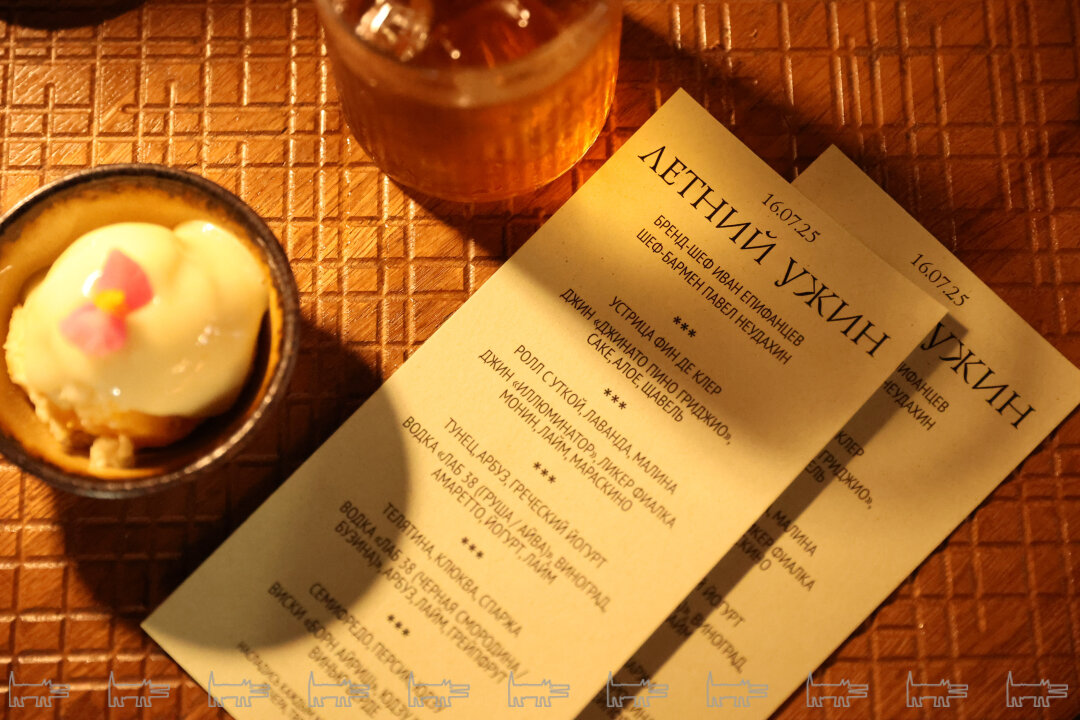 ЛЕТНИЙ УЖИН
16.07.25
БРЕНД-ШЕФ ИВАН ЕПИФАНЦЕВ
ШЕФ-БАРМЕН ПАВЕЛ НЕУДАХИН
***
УСТРИЦА ФИН ДЕ КЛЕР
ДЖИН «ДЖИНАТО ПИНО ГРИДЖИО»,
САКЕ, АЛОЕ, ЩАВЕЛЬ
***
РОЛЛ С УТКОЙ, ЛАВАНДА, МАЛИНА
ДЖИН «ИЛЛЮМИНАТОР», ЛИКЕР ФИАЛКА
МОНИН, ЛАЙМ, МАРАСКИНО
***
ТУНЕЦ, АРБУЗ, ГРЕЧЕСКИЙ ЙОГУРТ
ВОДКА «ЛАБ 38 (ГРУША / АЙВА)», ВИНОГРАД,
АМАРЕТТО, ЙОГУРТ, ЛАЙМ
***
ТЕЛЯТИНА, КЛЮКВА, СПАРЖА
ВОДКА «ЛАБ 38 (ЧЕРНАЯ СМОРОДИНА /
БУЗИНА)», АРБУЗ, ЛАЙМ, ГРЕЙПФРУТ
***
СЕМИФРЕДО, ПЕРСИК, ЮДЗУ
ВИСКИ «БОРН АЙРИШ», ЮДЗУ
16.07.25
УЖИН
НЕУДАХИН
КЛЕР
ГРИДЖИО»,
МАЛИНА
ФИАЛКА
ЙОГУРТ
ВИНОГРАД,